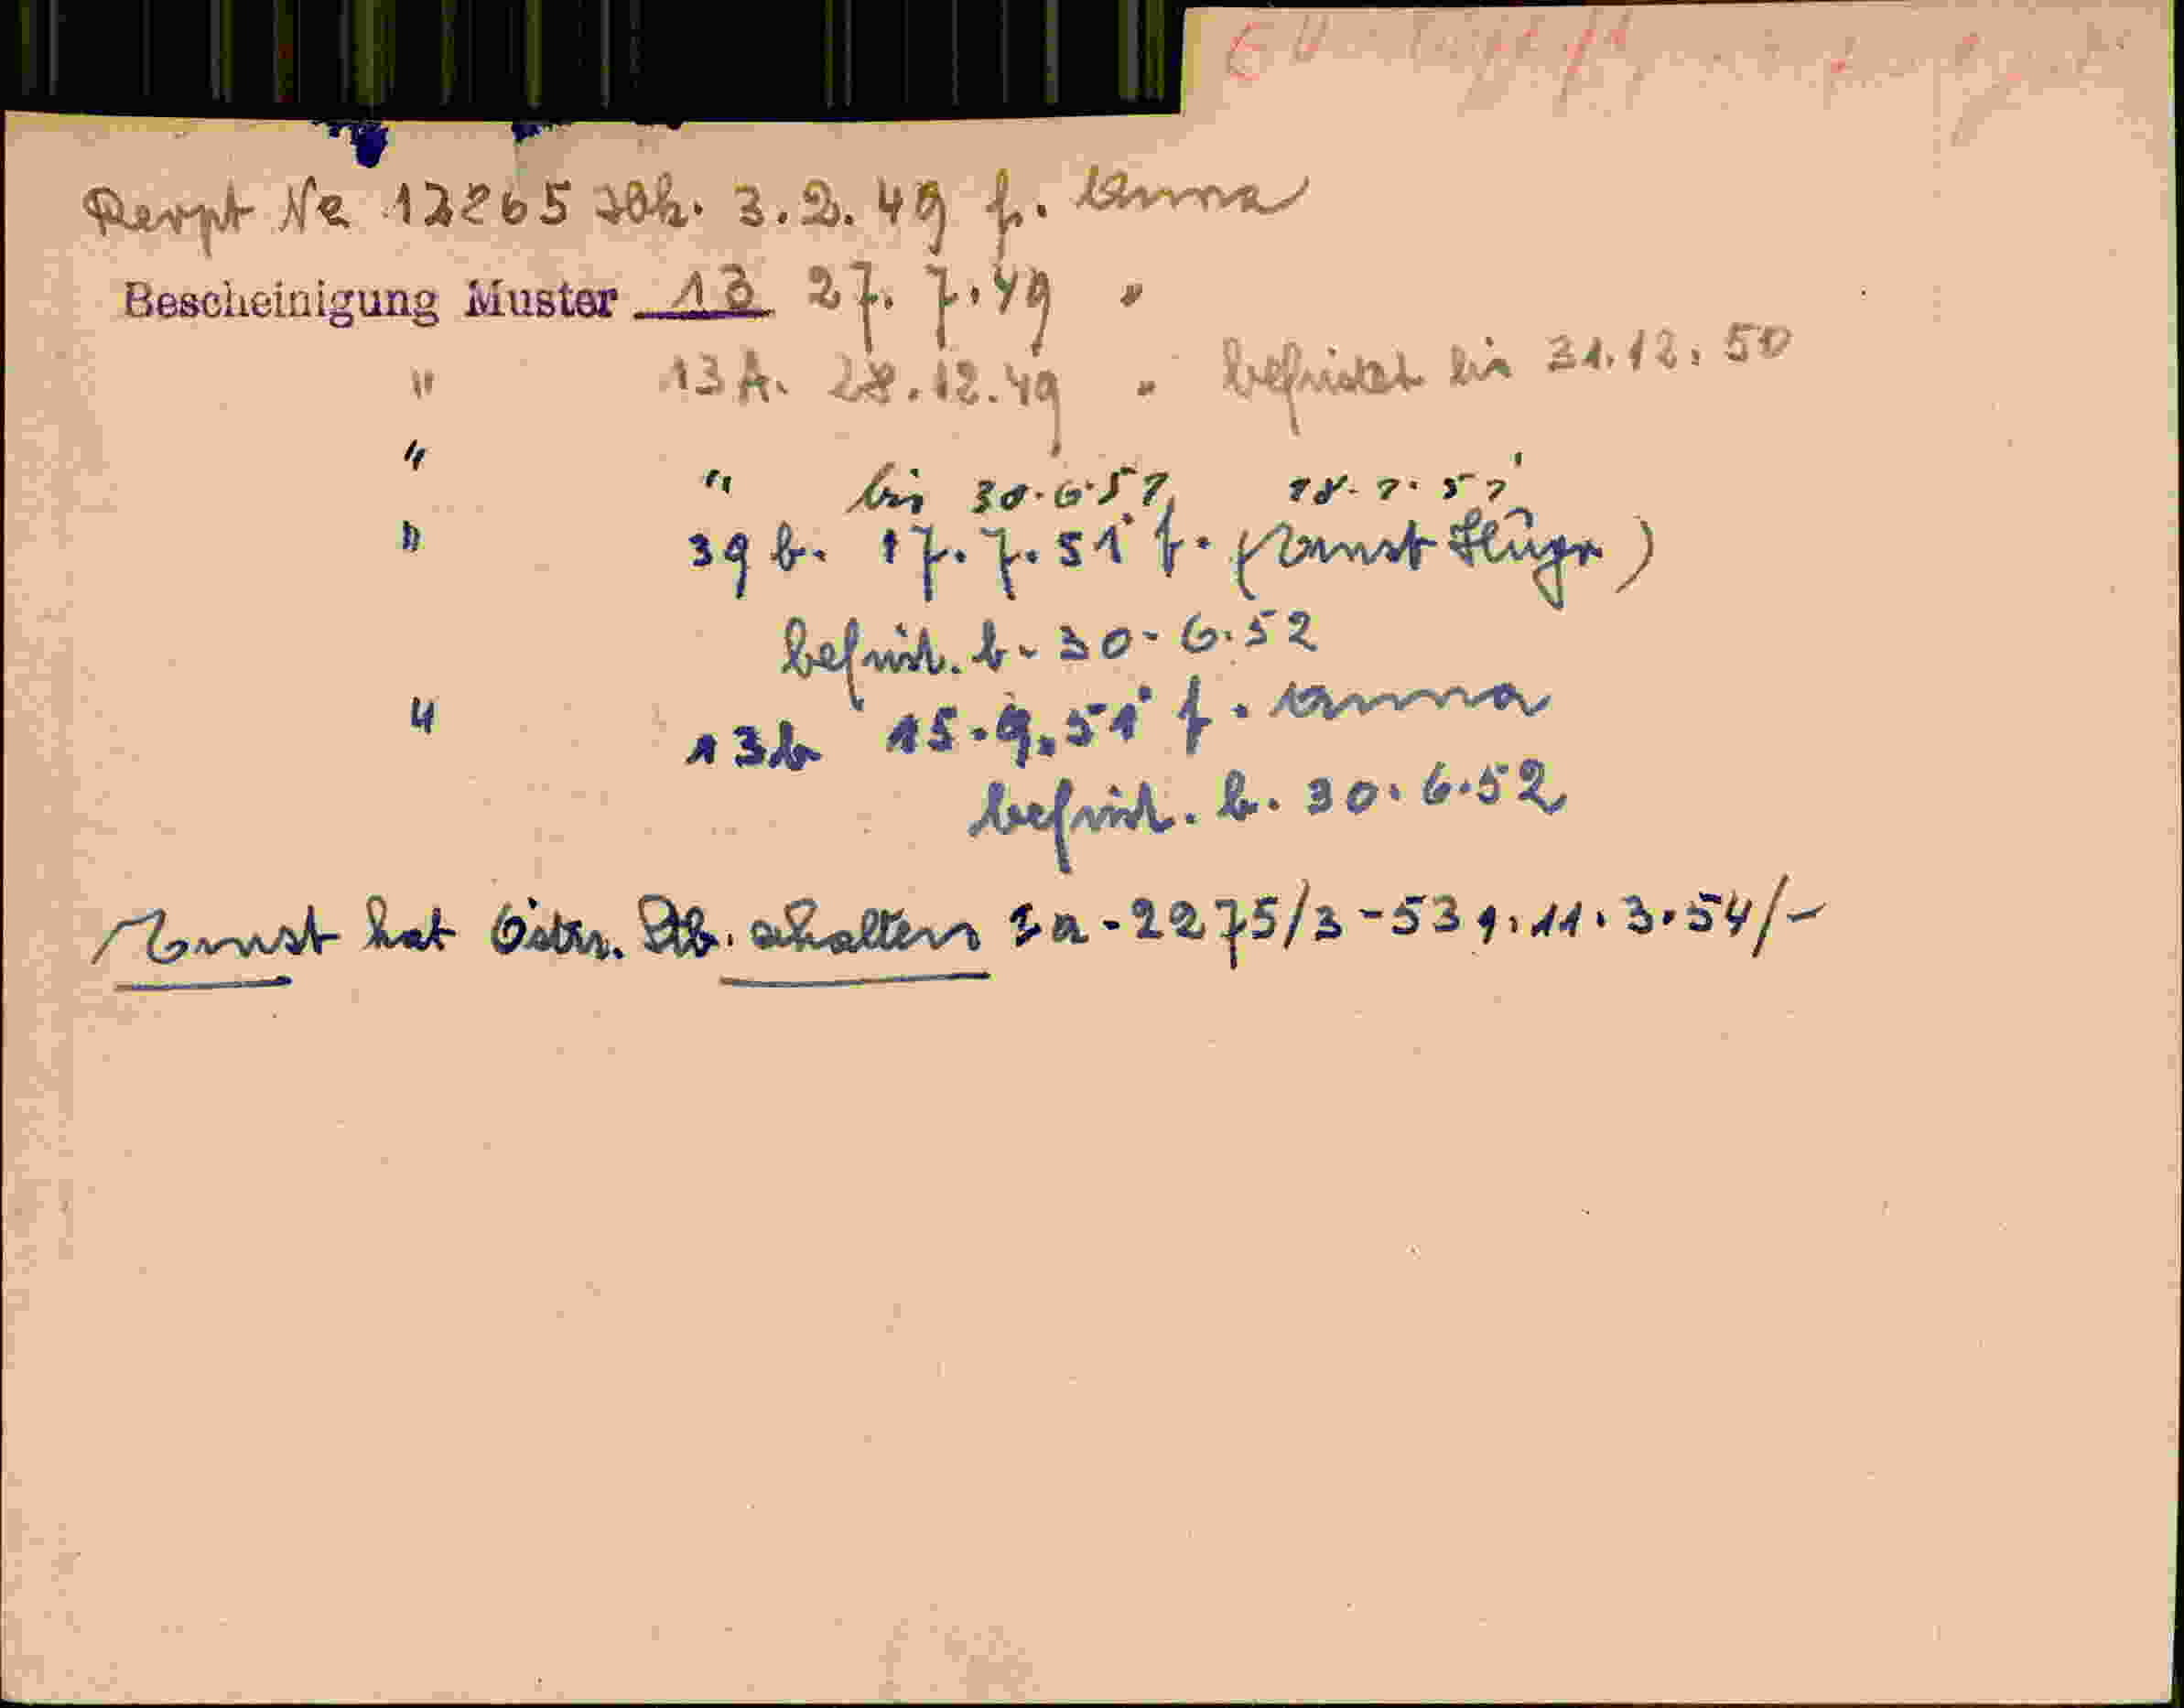 Rezpt No 12265 3. 2. 49 f. Anna
Bescheinigung Muster 13 27. 7. 49 "
" 13 A. 28. 12. 49 " befristet bis 31. 12. 50
" " bis 30.6.51 18.7.51
" 39 b. 17. 7. 51 f. (Ernst )
befrist. b. 30. 6. 52
" 13b 15. 9. 51 f. Anna
befrist. b. 30. 6. 52
Ernst hat Östr. Stb. erhalten Ia-2275/3-53 11. 3. 54/-